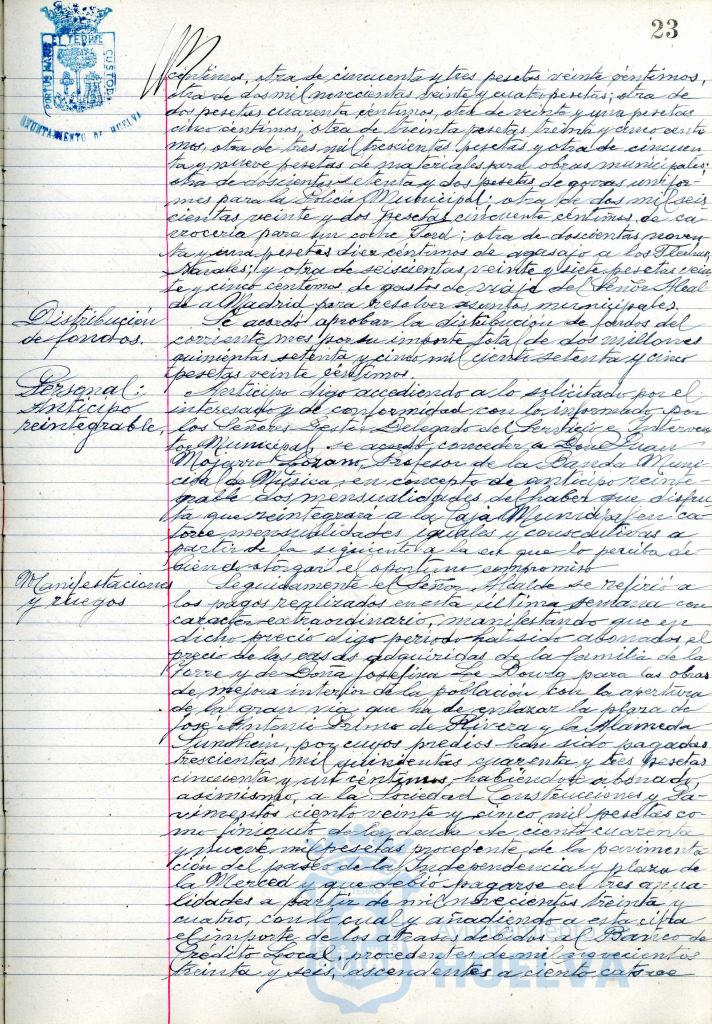 23
PORTUS MARIS ET TERRAE CUSTODIA
AYUNTAMIENTO DE HUELVA
céntimos, otra de cincuenta y tres pesetas veinte céntimos,
otra de dos mil novecientas veinte y cuatro pesetas; otra de
dos pesetas cuarenta céntimos, otra de veinte y una pesetas
cinco céntimos, otra de treinta pesetas treinta y cinco cénti
mos, otra de tres mil trescientas pesetas y otra de cincuen
ta y nueve pesetas de materiales para obras municipales;
otra de doscientas setenta y dos pesetas de gorras unifor
mes para la Policía Municipal; otra de dos mil seis
cientas veinte y dos pesetas cincuenta céntimos, de ca
rrocería para un coche Ford; otra de doscientas noven
ta y una pesetas diez céntimos de agasajo a los Flechas
Navales; y otra de seiscientas veinte y siete pesetas vein
te y cinco céntimos, de gastos de viaje del Señor Alcal
de a Madrid para resolver asuntos municipales.
Distribución
de fondos.
Se acordó aprobar la distribución de fondos del
corriente mes por su importe total de dos millones
quinientas setenta y cinco mil ciento setenta y cinco
pesetas veinte céntimos.
Personal:
Anticipo
reintegrable.
Anticipo digo accediendo a lo solicitado por el
interesado y de conformidad con lo informado por
los Señores Gestor Delegado del Servicio e Interven
tor Municipal, se acordó conceder a Don Juan
Mojarro Lozano, Profesor de la Banda Muni
cipal de Música, en concepto de anticipo reinte
grable dos mensualidades del haber que disfru
ta que reintegrará a la Caja Municipal en ca
torce mensualidades iguales y consecutivas a
partir de la siguiente a la en que lo perciba de
biendo otorgar el oportuno compromiso
Manifestaciones
y ruegos
Seguidamente el Señor Alcalde se refirió a
los pagos realizados en esta última semana con
caracter extraordinario, manifestando que en
dicho precio digo periodo ha sido abonados el
precio de las casas adquiridas de la familia de la
Torre y de Doña Josefina Le Dourg para las obras
de mejora interior de la población con la apertura
de la gran vía que ha de enlazar la plaza de
José Antonio Primo de Rivera y la Alameda
Sundheim, por cuyos predios han sido pagadas
trescientas mil quinientas cuarenta y tres pesetas
cincuenta y un céntimos, habiéndose abonado,
asimismo, a la Sociedad Construcciones y Pa
vimentos ciento veinte y cinco mil pesetas co
mo finiquito de la deuda de ciento cuarenta
y nueve mil pesetas procedente de la pavimenta
ción del paseo de la Independencia y plaza de
la Merced y que debió pagarse en tres anua
lidades a partir de mil novecientos treinta y
cuatro, con lo cual y añadiendo a esta cifra
el importe de los atrasos debidos al Banco de
Crédito Local, procedentes de mil novecientos
treinta y seis, ascendentes a ciento catorce
Ayuntamiento de
HUELVA